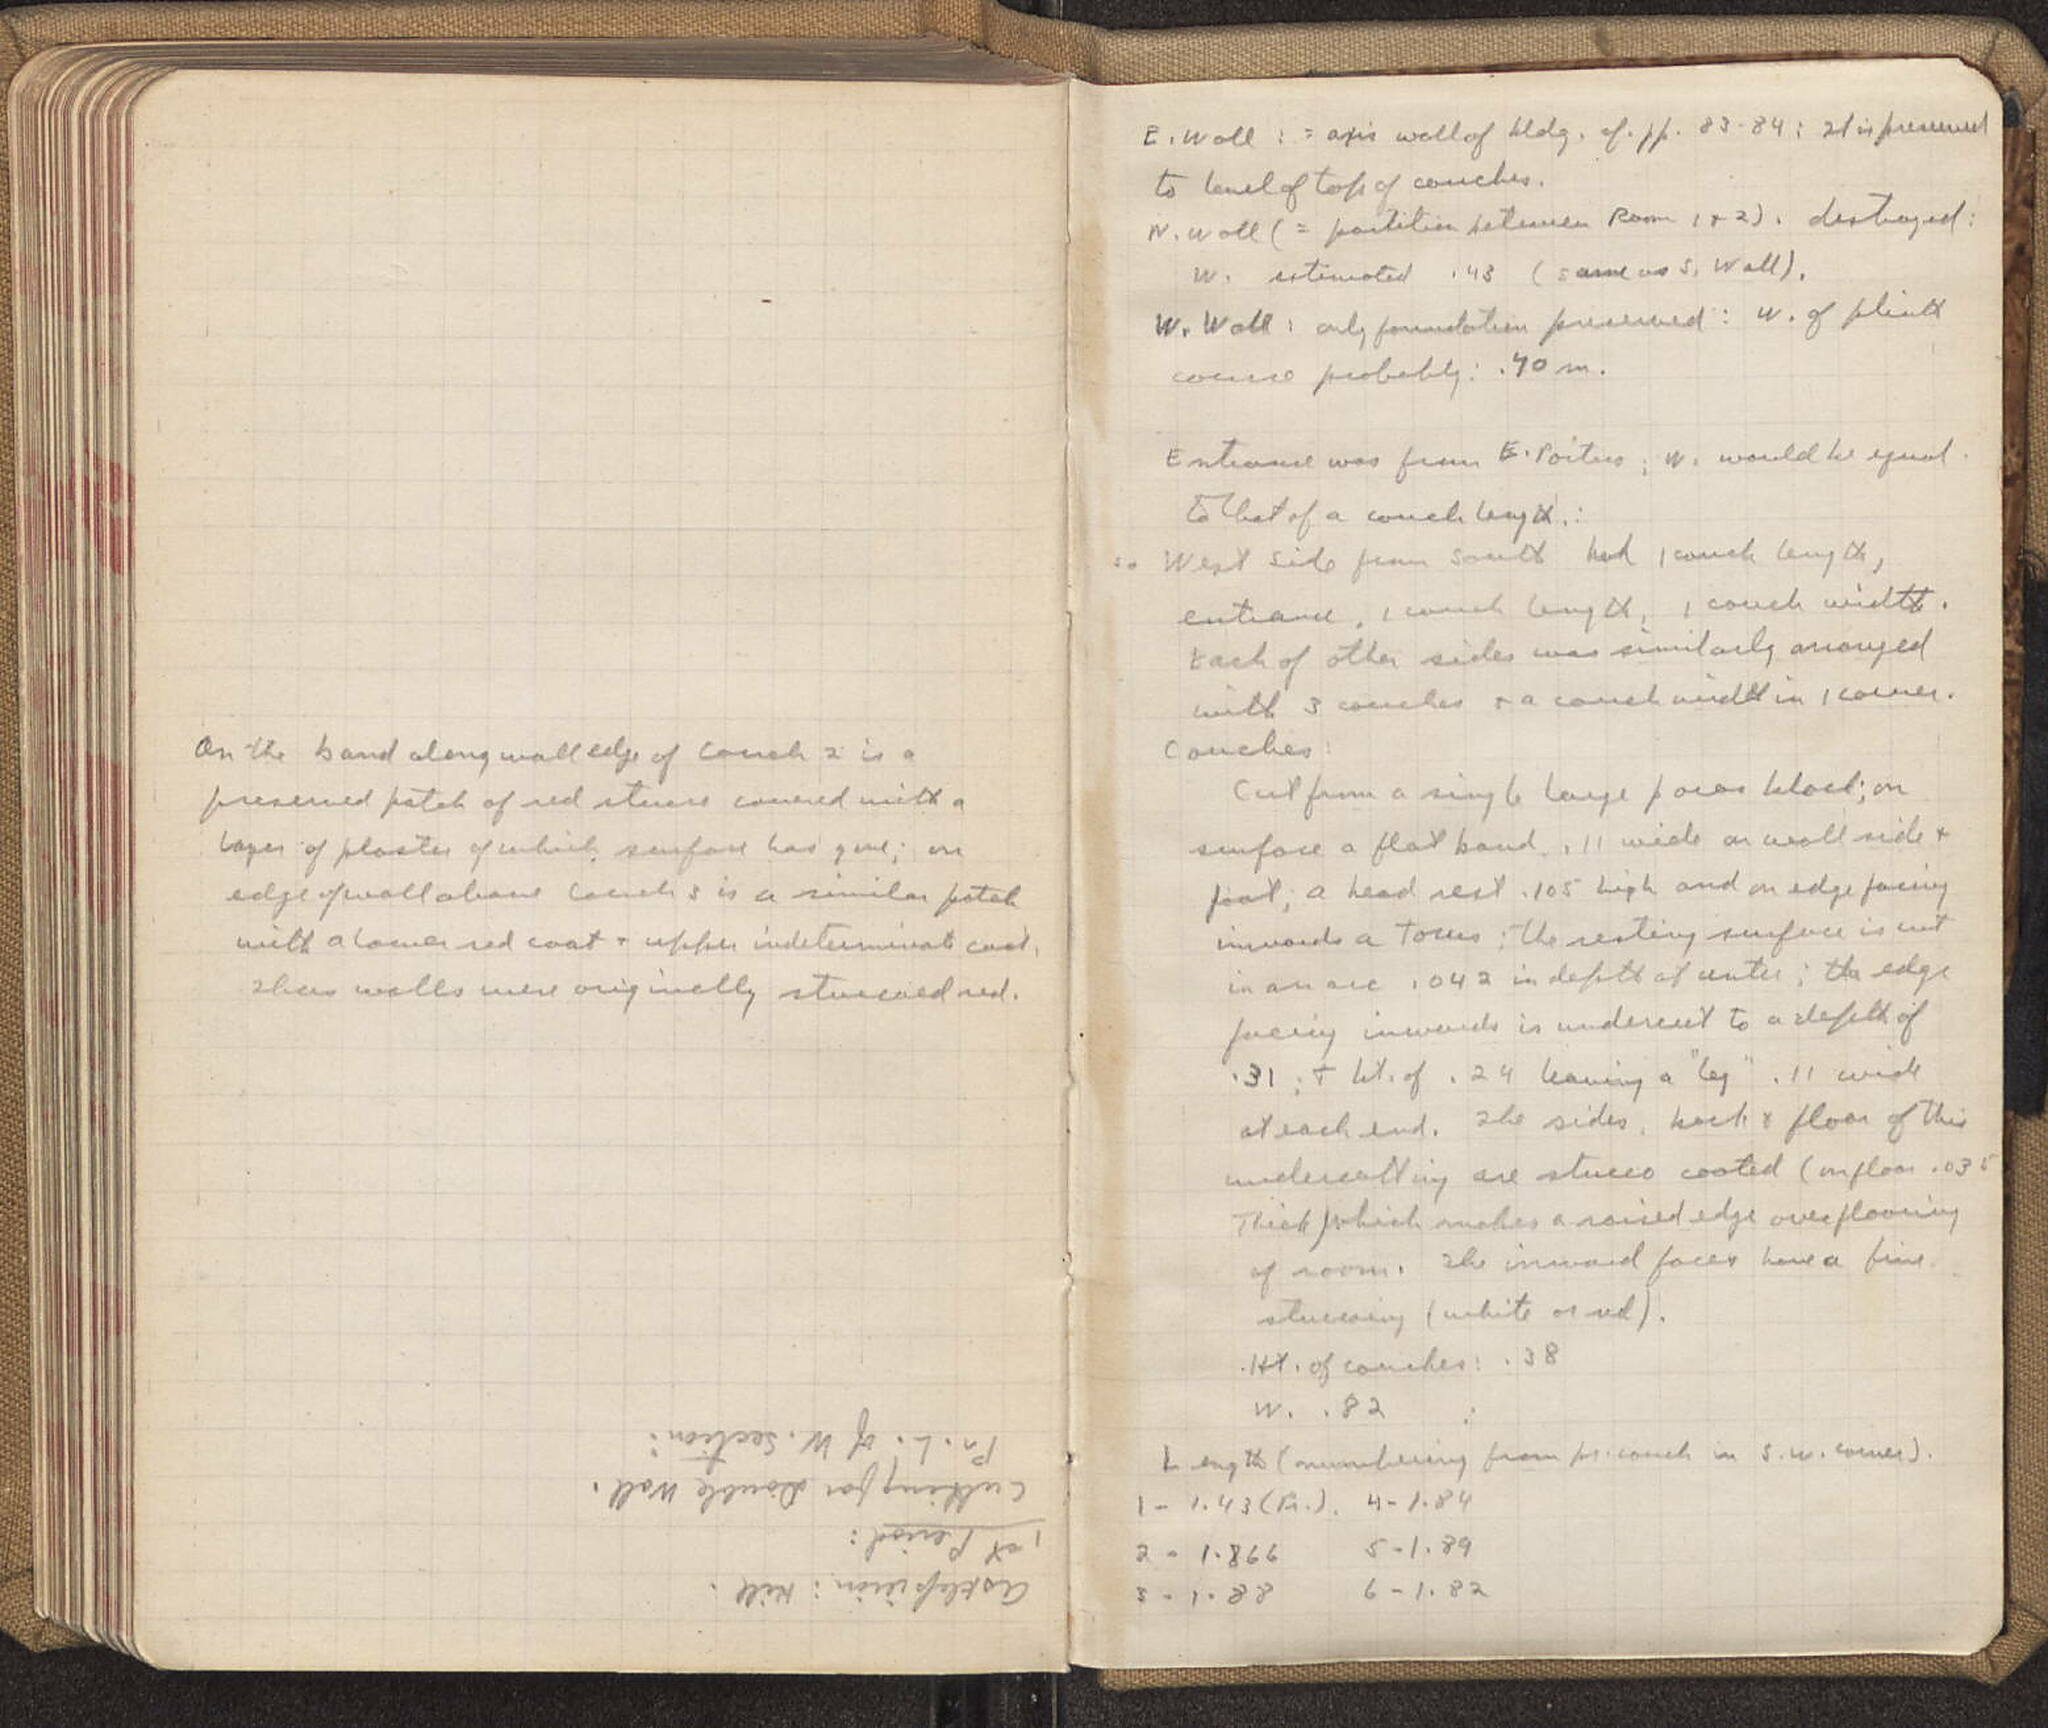 On the band along wall edge of Couch 2 is a
preserved patch of red stucco covered with a
layer of plaster of which surface has gone; on
edge of wall above Couch 3 is a similar patch
with a lower red coat + upper indeterminate coat.
Thus walls were originally stuccoed red.
Asklepieion: Hill.
1st Period:
Cutting for Double Wall.
Pr. L. of W. Section:
E. Wall : = axis wall of bldg. cf. pp. 83-84 : It is preserved
to level of top of couches.
N. Wall (= partition between Room 1 + 2). destroyed:
W. estimated .43 (same as S. Wall).
W. Wall : only foundation preserved : W. of plinth
course probably: .40 m.
Entrance was from E. Porticus ; W. would be equal
to that of a couch length.:
So West side from South had 1 couch length,
entrance, 1 couch length, 1 couch width.
Each of other sides was similarly arranged
with 3 couches + a couch width in 1 corner.
Couches:
Cut from a single large poros block; on
surface a flat band .11 wide on wall side +
foot; a head rest .105 high and on edge facing
inwards a torus; the resting surface is cut
in an arc .042 in depth at center; the edge
facing inwards is undercut to a depth of
.31 ; + ht. of .24 leaving a "leg" .11 wide
at each end. The sides, back + floor of this
undercutting are stucco coated (on floor .035
thick) which makes a raised edge over flooring
of room. The inward faces have a fine
stuccoing (white or red).
Ht. of couches: .38
W. .82 :
Length (numbering from pr. couch in S.W. corner).
1 - 1.43 (Pr.). 4 - 1.84
2 - 1.866 5 - 1.89
3 - 1.88 6 - 1.82